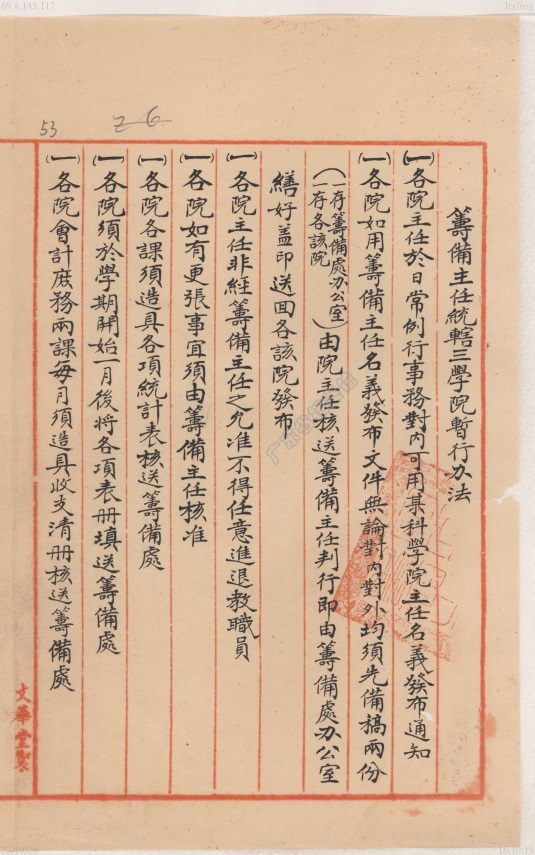 69.4.143.117
53
籌備主任統轄三學院暫行办法
㈠各院主任於日常例行事務對內可用某科學院主任名義發布通知
㈠各院如用籌備主任名義發布文件無論對內對外均須先備稿兩份
(一存籌備處办公室
一存各該院)由院主任核送籌備主任判行即由籌備處办公室
繕好盖印送回各該院發布
㈠各院主任非經籌備主任之允准不得任意進退教職員
㈠各院如有更張事宜須由籌備主任核准
㈠各院各課須造具各項統計表核送籌備處
㈠各院須於學期開始一月後將各項表册填送籌備處
㈠各院會計庶務兩課每月須造具收支清册核送籌備處
文華堂製